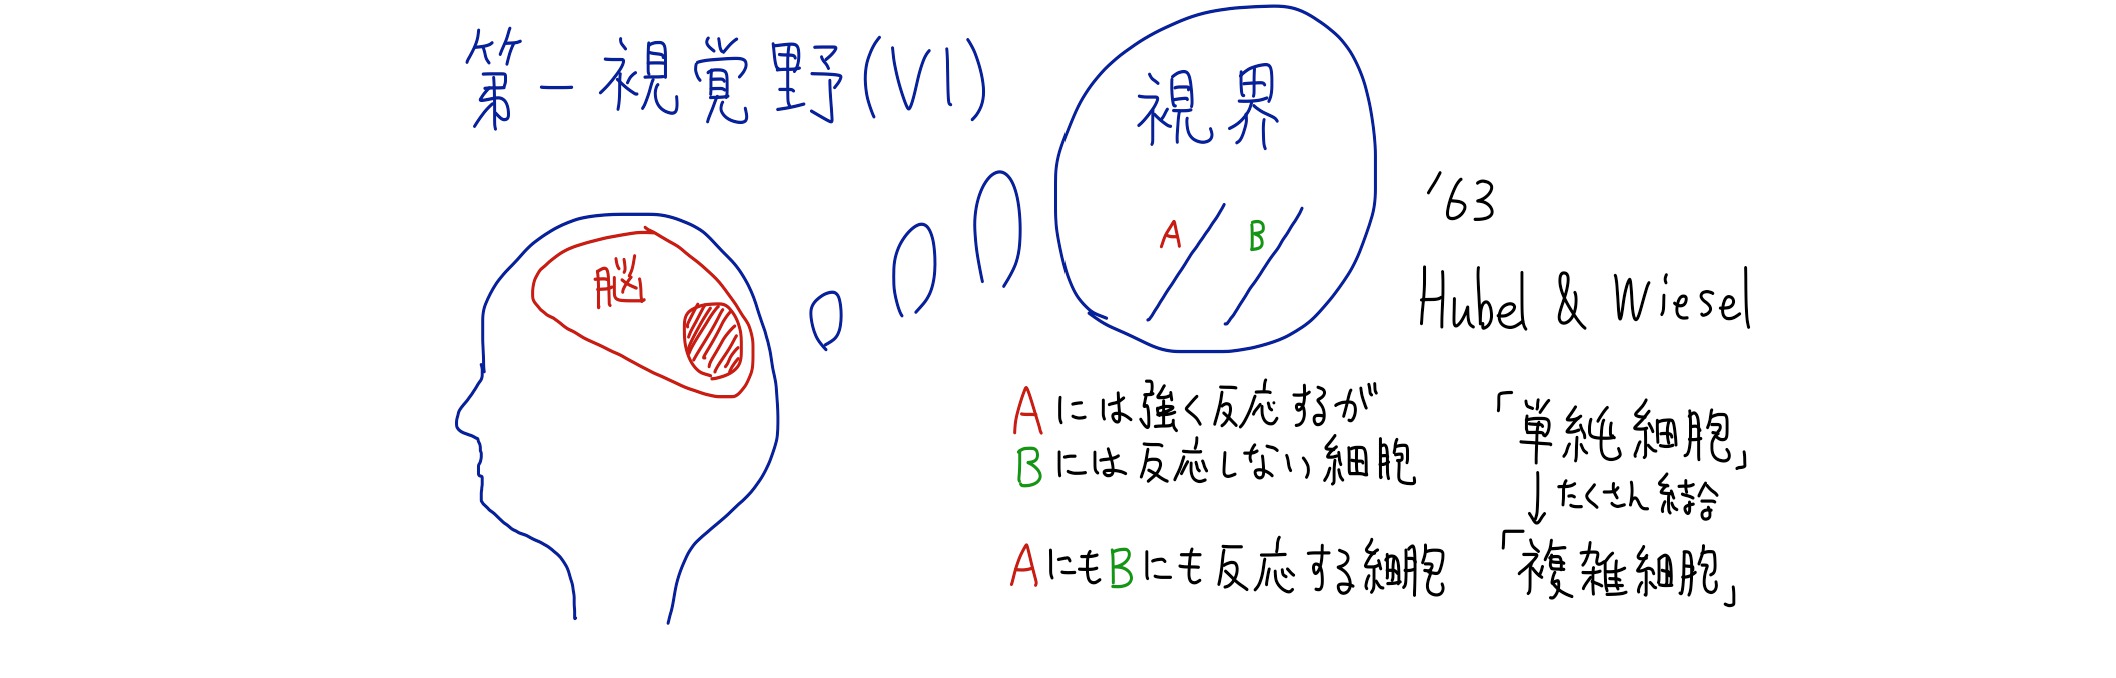 第一視覚野(V1)
視界
A
B
脳
'63
Hubel & Wiesel
Aには強く反応するが
Bには反応しない細胞
「単純細胞」
↓たくさん結合
AにもBにも反応する細胞
「複雑細胞」